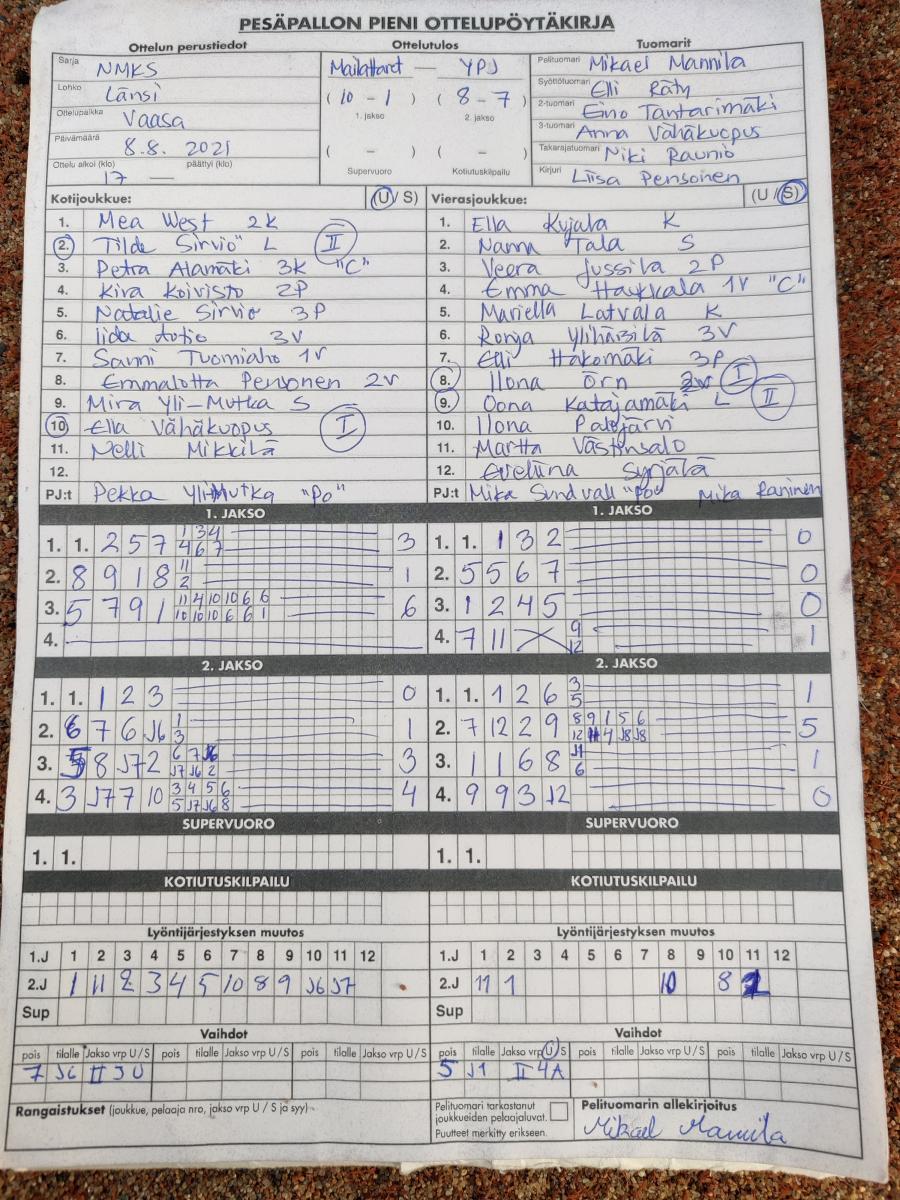 PESÄPALLON PIENI OTTELUPÖYTÄKIRJA
Ottelun perustiedot Ottelutulos Tuomarit
Sarja NMKS
Lohko Länsi
Ottelupaikka Vaasa
Päivämäärä 8.8. 2021
Ottelu alkoi (klo) päättyi (klo)
17 —
Mailattaret — YPJ
( 10 - 1 ) ( 8 - 7 )
1. jakso 2. jakso
( - ) ( - )
Supervuoro Kotiutuskilpailu
Pelituomari Mikael Mannila
Syöttötuomari Elli Räty
2-tuomari Eino Tantarimäki
3-tuomari Anna Vähäkuopus
Takarajatuomari Niki Raunio
Kirjuri Liisa Pensonen
Kotijoukkue: (U/ S)
1. Mea West 2K
2. Tilde Sirviö L II
3. Petra Alamäki 3K "C"
4. Kira Koivisto 2P
5. Natalie Sirviö 3P
6. Iida Autio 3V
7. Sanni Tuomiaho 1V
8. Emmalotta Pensonen 2V
9. Mira Yli-Mutka S
10. Ella Vähäkuopus I
11. Nelli Mikkilä
12.
PJ:t Pekka Yli-Mutka "Po"
Vierasjoukkue: (U/ S)
1. Ella Kujala K
2. Nanna Tala S
3. Veera Jussila 2P
4. Emma Haukkala 1V "C"
5. Mariella Latvala K
6. Ronja Ylihärsilä 3V
7. Elli Hakomäki 3P
8. Ilona Örn I
9. Oona Katajamäki L II
10. Ilona Palojärvi
11. Martta Västinsalo
12. Eveliina Syrjälä
PJ:t Mika Sundvall "Po" Mika Raninen
1. JAKSO
1. 1. 2 5 7 1 3 4 3
4 6 7
2. 8 9 1 8 11 1
2
3. 5 7 9 1 11 4 10 10 6 6 6
10 10 10 6 6 1
4.
1. JAKSO
1. 1. 1 3 2 0
2. 5 5 6 7 0
3. 1 2 4 5 0
4. 7 11 9 1
12
2. JAKSO
1. 1. 1 2 3 0
2. 6 7 6 J6 1 1
3
3. 8 J7 2 6 7 J6 3
J7 J6 2
4. 3 J7 7 10 3 4 5 6 4
5 J7 J6 8
2. JAKSO
1. 1. 1 2 6 3 1
5
2. 7 12 2 9 8 9 1 5 6 5
12 4 J8 J8
3. 1 1 6 8 J1 1
6
4. 9 9 3 J2 0
SUPERVUORO
1. 1.
SUPERVUORO
1. 1.
KOTIUTUSKILPAILU
KOTIUTUSKILPAILU
Lyöntijärjestyksen muutos
1.J 1 2 3 4 5 6 7 8 9 10 11 12
2.J 1 11 2 3 4 5 10 8 9 J6 J7
Sup
Lyöntijärjestyksen muutos
1.J 1 2 3 4 5 6 7 8 9 10 11 12
2.J 11 1 10 8
Sup
Vaihdot
pois tilalle Jakso vrp U / S pois tilalle Jakso vrp U / S pois tilalle Jakso vrp U / S
7 J6 II 3 U
Vaihdot
pois tilalle Jakso vrp U / S pois tilalle Jakso vrp U / S pois tilalle Jakso vrp U / S
5 J1 II 4A
Rangaistukset (joukkue, pelaaja nro, jakso vrp U / S ja syy)
Pelituomari tarkastanut
joukkueiden pelaajaluvat.
Puutteet merkitty erikseen.
Pelituomarin allekirjoitus
Mikael Mannila